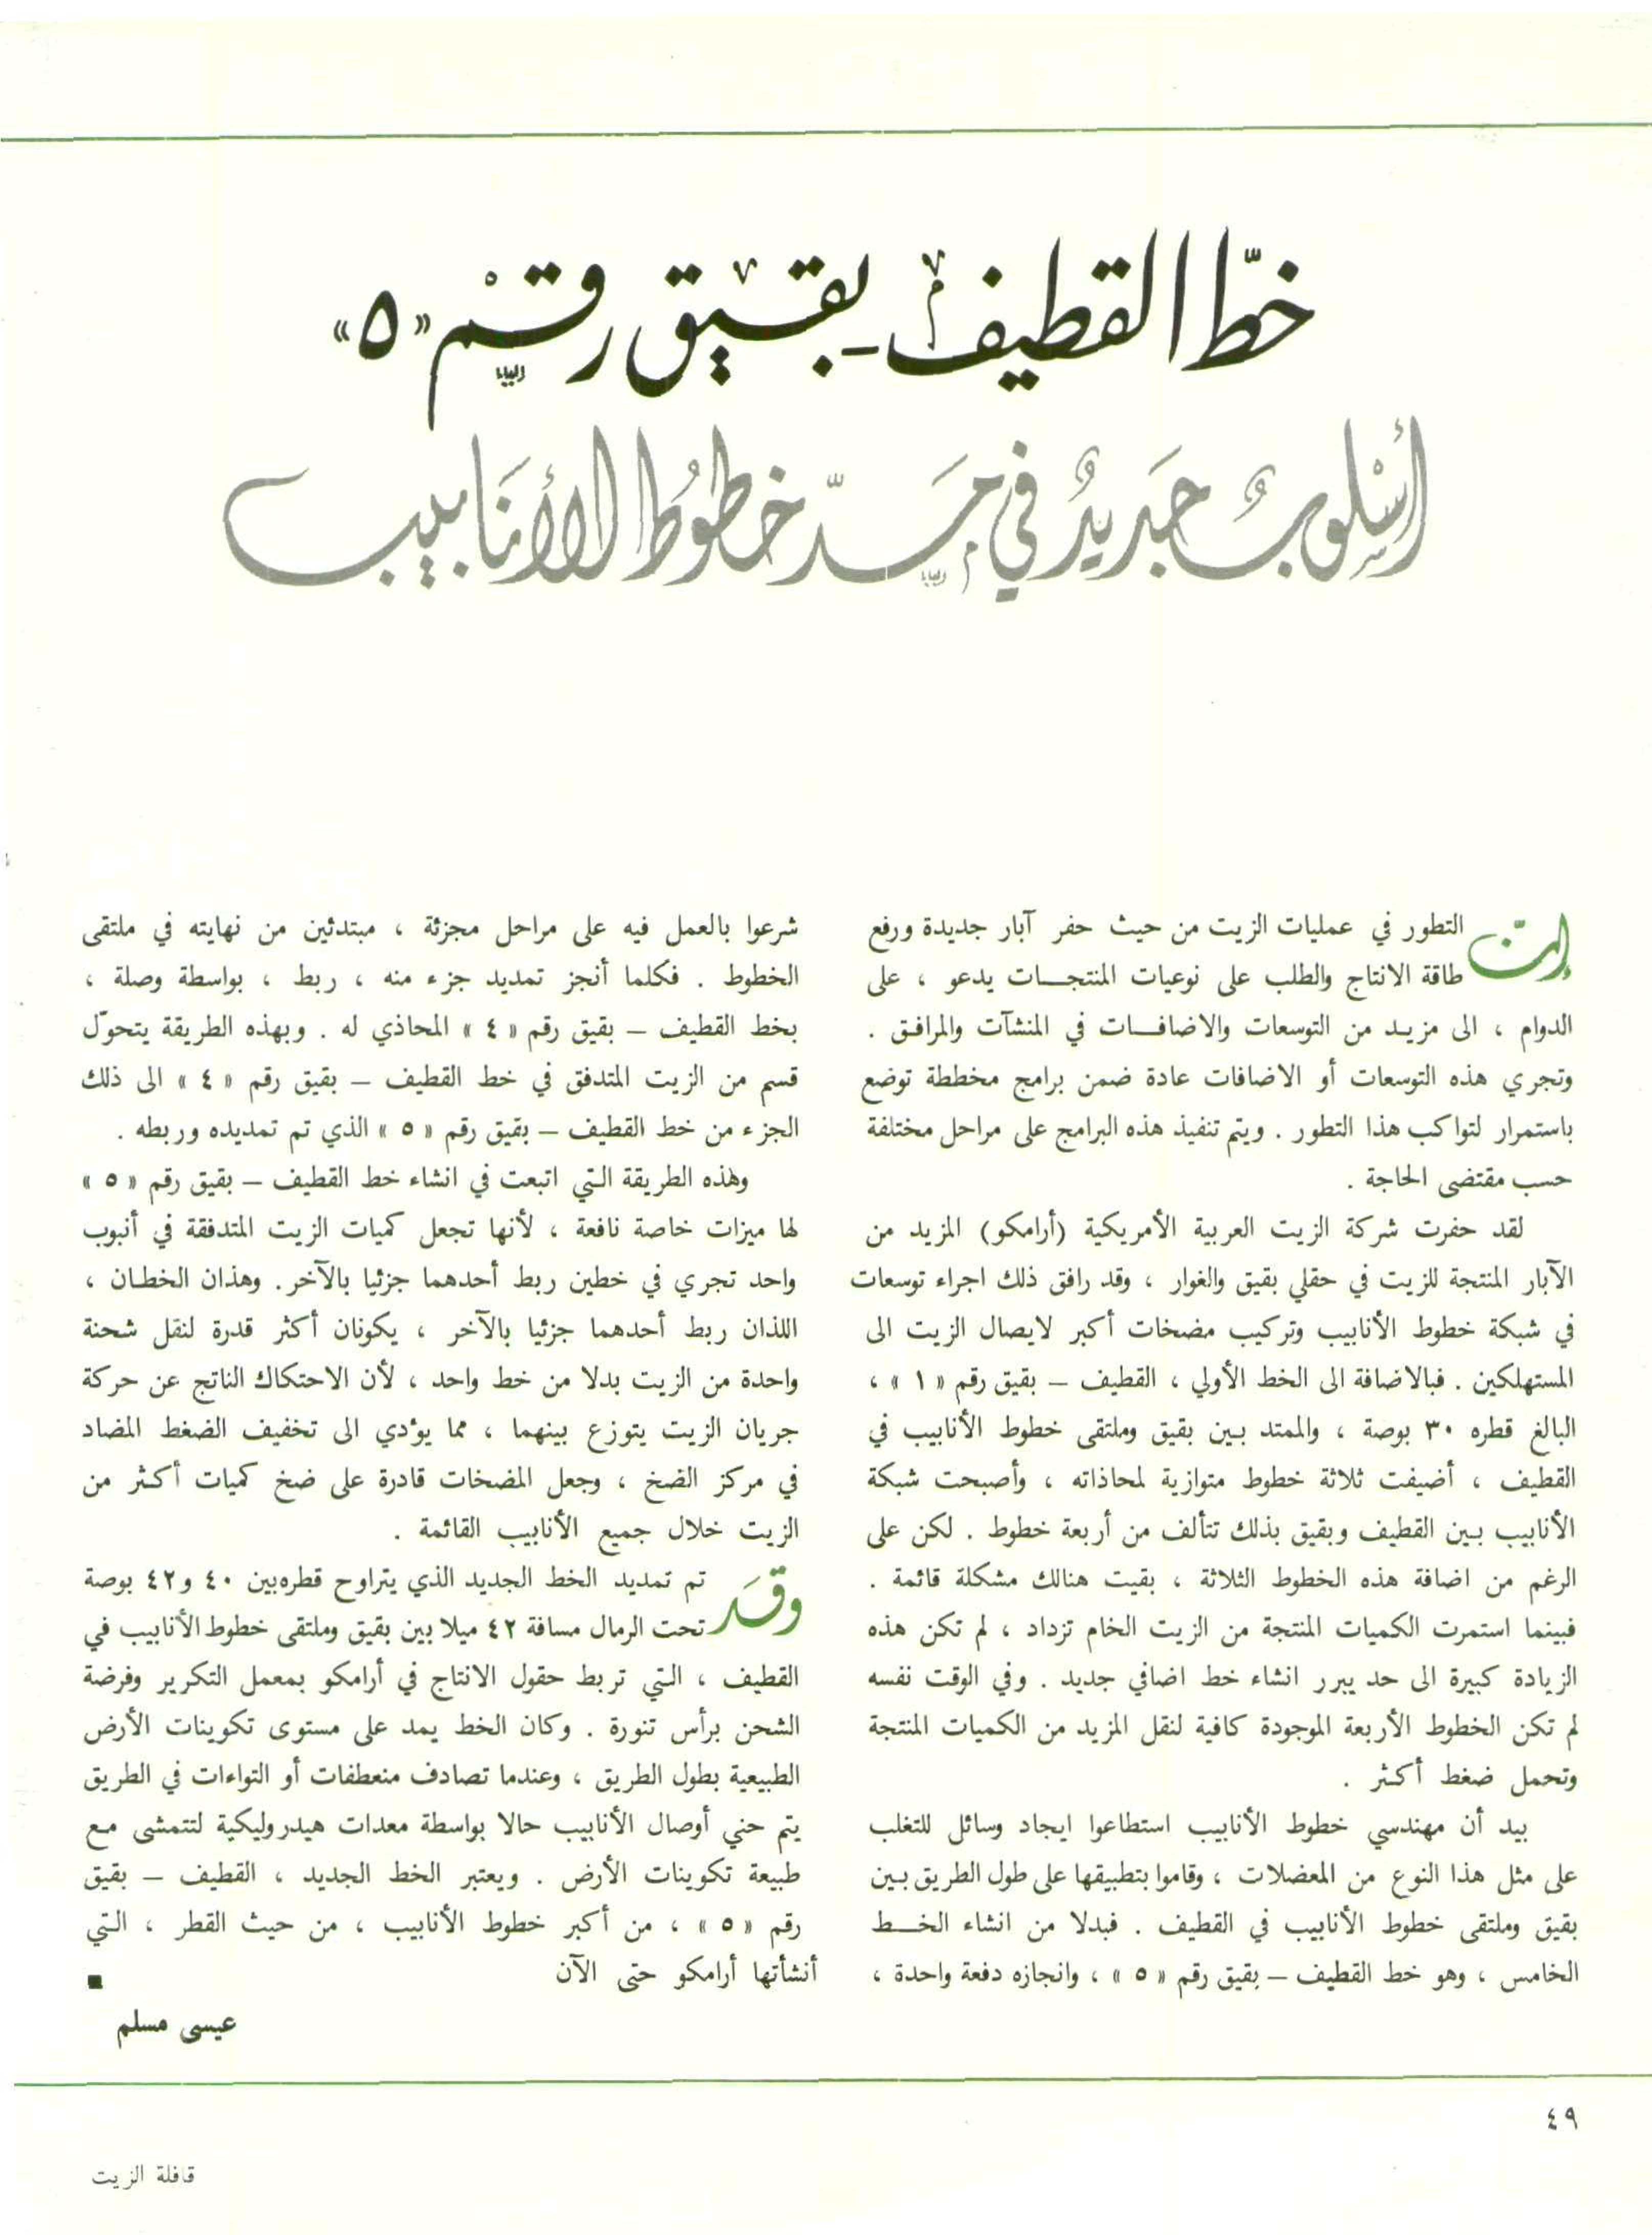 خطّ القطيف ـ بقيق رقم «٥»
أسلوب جديد في مدّ خطوط الأنابيب
إنّ التطور في عمليات الزيت من حيث حفر آبار جديدة ورفع
طاقة الانتاج والطلب على نوعيات المنتجـات يدعو ، على
الدوام ، الى مزيـد من التوسعات والاضافـات في المنشآت والمرافـق .
وتجري هذه التوسعات أو الاضافات عادة ضمن برامج مخططة توضع
باستمرار لتواكب هذا التطور . ويتم تنفيذ هذه البرامج على مراحل مختلفة
حسب مقتضى الحاجة .
لقد حفرت شركة الزيت العربية الأمريكية (أرامكو) المزيد من
الآبار المنتجة للزيت في حقلي بقيق والغوار ، وقد رافق ذلك اجراء توسعات
في شبكة خطوط الأنابيب وتركيب مضخات أكبر لايصال الزيت الى
المستهلكين . فبالاضافة الى الخط الأولي ، القطيف – بقيق رقم « ١ » ،
البالغ قطره ٣٠ بوصة ، والممتد بـين بقيق وملتقى خطوط الأنابيب في
القطيف ، أضيفت ثلاثة خطوط متوازية لمحاذاته ، وأصبحت شبكة
الأنابيب بـين القطيف وبقيق بذلك تتألف من أربعة خطوط . لكن على
الرغم من اضافة هذه الخطوط الثلاثة ، بقيت هنالك مشكلة قائمة .
فبينما استمرت الكميات المنتجة من الزيت الخام تزداد ، لم تكن هذه
الزيادة كبيرة الى حد يبرر انشاء خط اضافي جديد . وفي الوقت نفسه
لم تكن الخطوط الأربعة الموجودة كافية لنقل المزيد من الكميات المنتجة
وتحمل ضغط أكثر .
بيد أن مهندسي خطوط الأنابيب استطاعوا ايجاد وسائل للتغلب
على مثل هذا النوع من المعضلات ، وقاموا بتطبيقها على طول الطريق بـين
بقيق وملتقى خطوط الأنابيب في القطيف . فبدلا من انشاء الخـط
الخامس ، وهو خط القطيف – بقيق رقم « ٥ » ، وانجازه دفعة واحدة ،
شرعوا بالعمل فيه على مراحل مجزئة ، مبتدئين من نهايته في ملتقى
الخطوط . فكلما أنجز تمديد جزء منه ، ربط ، بواسطة وصلة ،
بخط القطيف – بقيق رقم « ٤ » المحاذي له . وبهذه الطريقة يتحوّل
قسم من الزيت المتدفق في خط القطيف – بقيق رقم « ٤ » الى ذلك
الجزء من خط القطيف – بقيق رقم « ٥ » الذي تم تمديده وربطه .
ولهذه الطريقة التي اتبعت في انشاء خط القطيف – بقيق رقم « ٥ »
لها ميزات خاصة نافعة ، لأنها تجعل كميات الزيت المتدفقة في أنبوب
واحد تجري في خطين ربط أحدهما جزئيا بالآخر. وهذان الخطـان ،
اللذان ربط أحدهما جزئيا بالآخر ، يكونان أكثر قدرة لنقل شحنة
واحدة من الزيت بدلا من خط واحد ، لأن الاحتكاك الناتج عن حركة
جريان الزيت يتوزع بينهما ، مما يؤدي الى تخفيف الضغط المضاد
في مركز الضخ ، وجعل المضخات قادرة على ضخ كميات أكـثر من
الزيت خلال جميع الأنابيب القائمة .
وقد تم تمديد الخط الجديد الذي يتراوح قطره بين ٤٠ و٤٢ بوصة
تحت الرمال مسافة ٤٢ ميلا بين بقيق وملتقى خطوط الأنابيب في
القطيف ، التي تربط حقول الانتاج في أرامكو بمعمل التكرير وفرضة
الشحن برأس تنورة . وكان الخط يمد على مستوى تكوينات الأرض
الطبيعية بطول الطريق ، وعندما تصادف منعطفات أو التواءات في الطريق
يتم حني أوصال الأنابيب حالا بواسطة معدات هيدروليكية لتتمشى مـع
طبيعة تكوينات الأرض . ويعتبر الخط الجديد ، القطيف – بقيق
رقم « ٥ » ، من أكبر خطوط الأنابيب ، من حيث القطر ، التي
أنشأتها أرامكو حتى الآن ■
عيسى مسلم
٤٩
قافلة الزيت